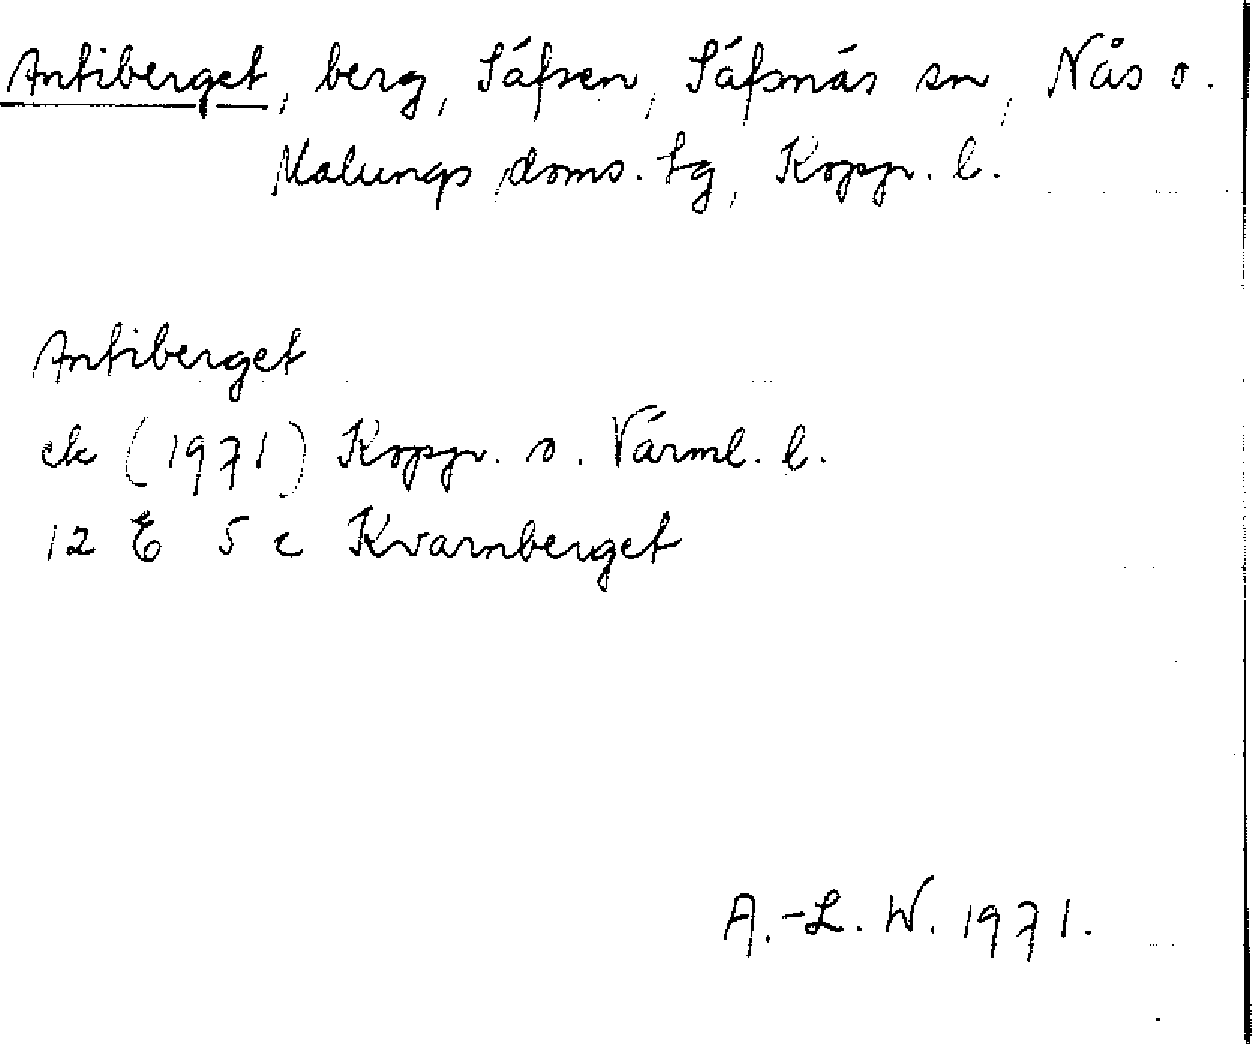 Antiberget, berg, Säfsen, Säfsnäs sn, Nås o.
Malungs doms. tg, Koppr. l.
Antiberget
ek (1971) Koppr. o. Värml. l.
12 E 5 c Kvarnberget
A.-L. W. 1971.